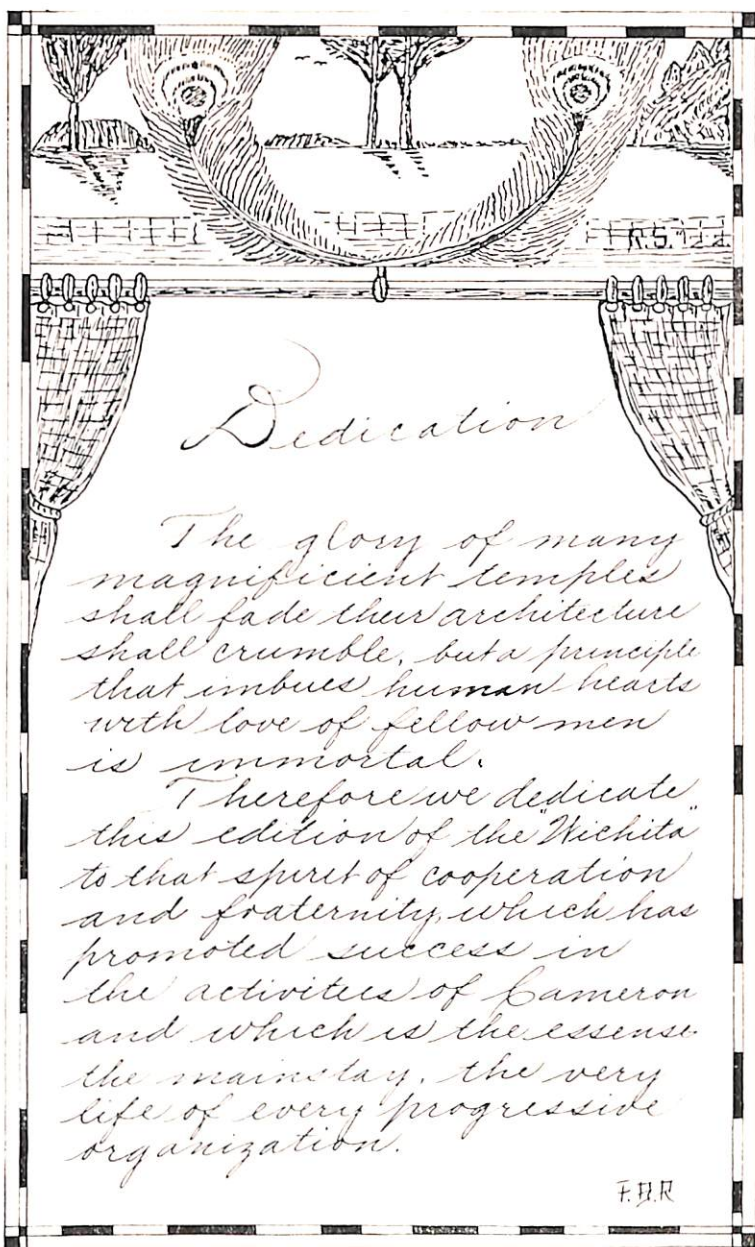 R.S. '22
Dedication
The glory of many
magnificient temples
shall fade their architecture
shall crumble, but a principle
that imbues human hearts
with love of fellow men
is immortal.
Therefore we dedicate
this edition of the "Wichita"
to that spirit of cooperation
and fraternity, which has
promoted success in
the activities of Cameron
and which is the essense
the mainstay, the very
life of every progressive
organization.
F.B.R